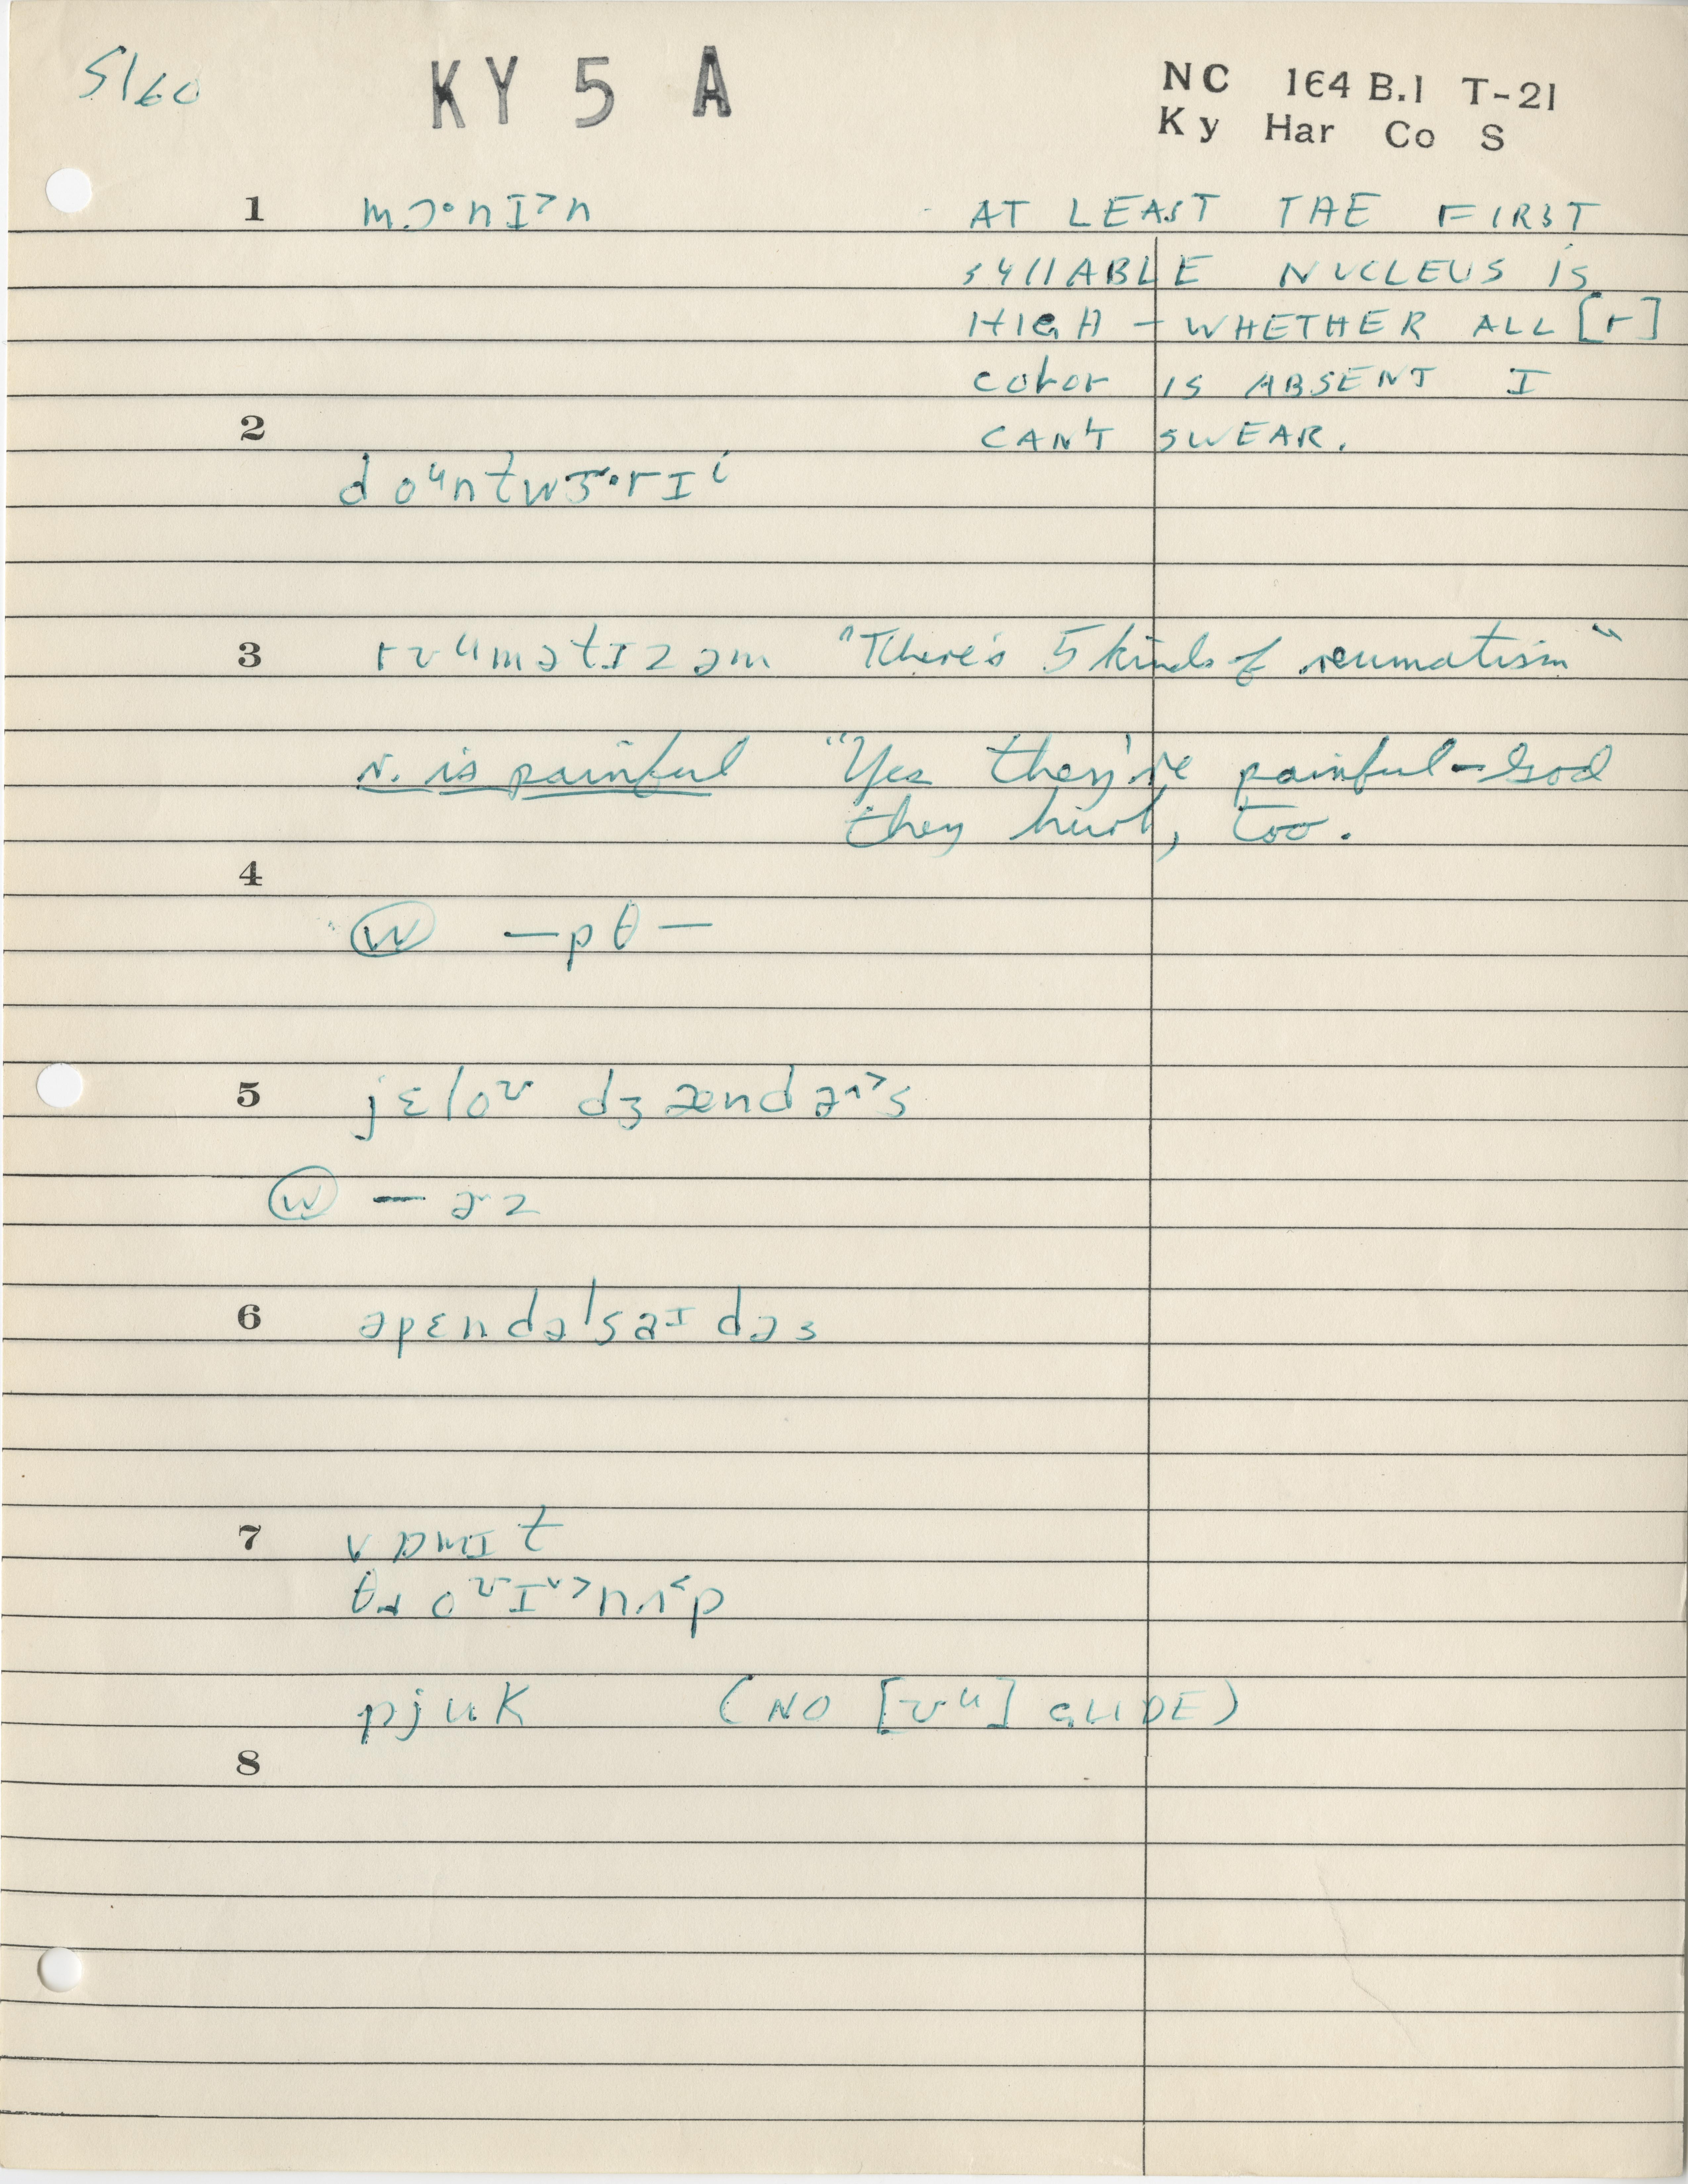 5/60 KY 5 A NC 164 B.1 T-21
Ky Har Co S
1 mɔ·nɪ˃n AT LEAST THE FIRST
SYLLABLE NUCLEUS IS
HIGH – WHETHER ALL [r]
color IS ABSENT I
2 CAN'T SWEAR.
doᵘntwɜ·rɪⁱ
3 rʊᵘmətɪzəm "There's 5 kinds of reumatism"
r. is painful "Yes they're painful – God
they hurt, too.
4
Ⓦ —pθ—
5 jɛloᶷ dʒændɚ˃s
Ⓦ — ɚz
6 əpɛndəˡsaᶦdəs
7 vɒmɪt
oᶷɪ˅˃nʌ˂p
pjuk (NO [ʊᵘ] GLIDE)
8